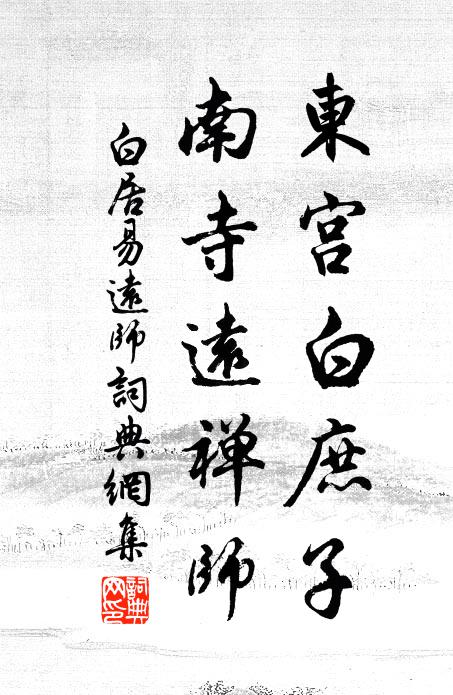 東宮白庶子
南寺遠禅師
白居易遠師詞典網集
詞典
网